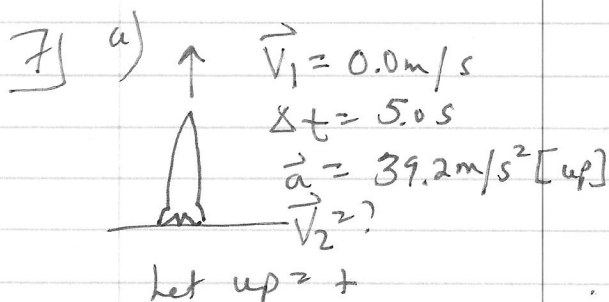 7] a) V⃗₁ = 0.0 m/s
Δt = 5.0 s
a⃗ = 39.2 m/s² [up]
V⃗₂ = ?
Let up = +